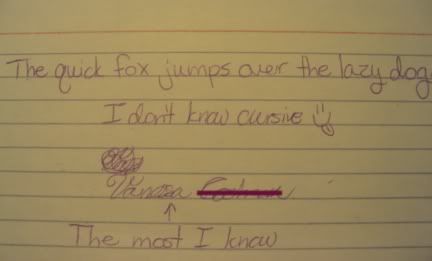 The quick fox jumps over the lazy dog.
I don't know cursive
Vanessa
The most I know